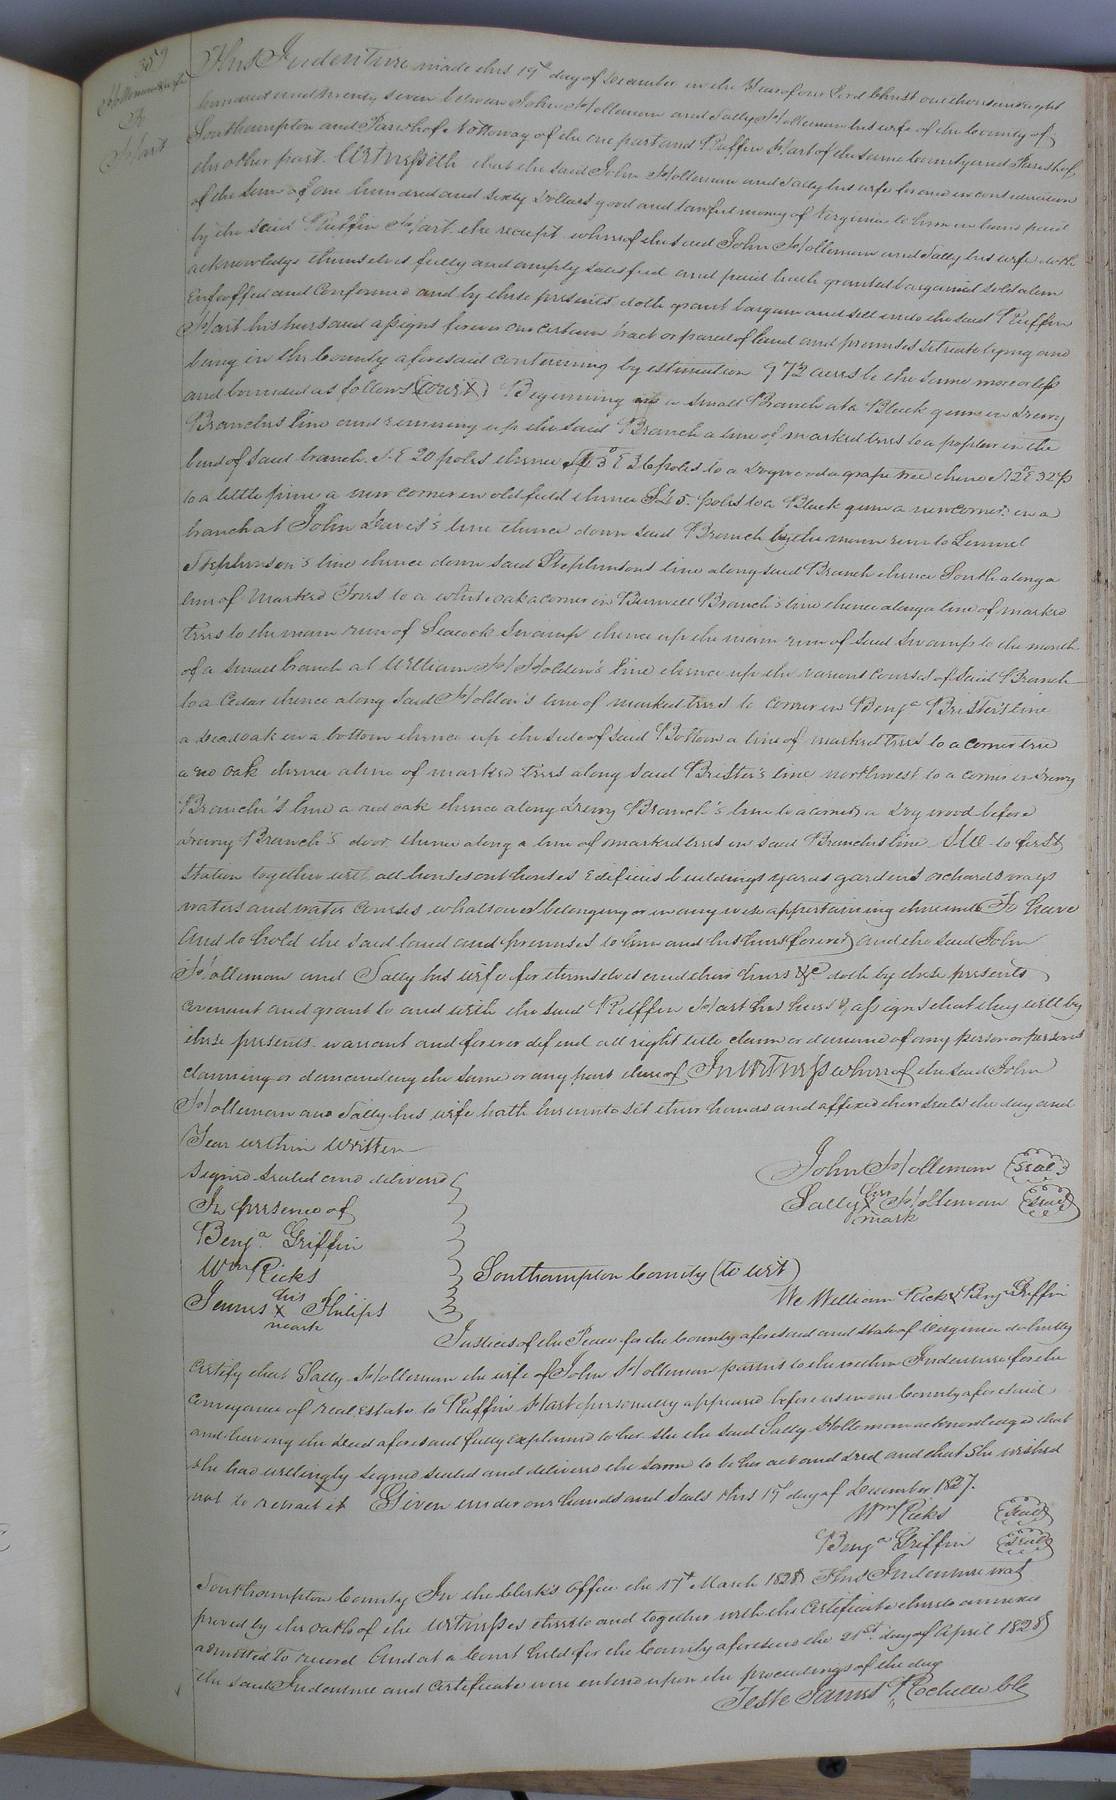 359
Holleman & wife
To
Hart
This Indenture made this 19th day of December in the Year of our Lord Christ one thousand eight
hundred and twenty seven between John Holleman and Sally Holleman his wife of the County of
Southampton and Parish of Nottoway of the one part and Ruffin Hart of the same County and Parish of
the other part. Witnesseth that the said John Holleman and Sally his wife for and in consideration
of the sum of one hundred and sixty Dollars good and lawful money of Virginia to him in hand paid
by the said Ruffin Hart the receipt whereof the said John Holleman and Sally his wife doth
acknowledge themselves fully and amply satisfied and paid hath granted bargained sold alien
Enfeoffed and Confirmed and by these presents doth grant bargain and sell unto the said Ruffin
Hart his heirs and assigns forever one certain tract or parcel of land and premises situate lying and
being in the County aforesaid containing by estimation 97½ acres be the same more or less
and bounded as follows (to wit) Beginning at a small Branch at a Black gum in Drewry
Branches line and running up the said Branch a line of marked trees to a poplar in the
head of said branch. S. E 20 poles thence 3° E 36 poles to a Dogwood a grape tree thence N 2° E 32 p
to a little pine a new corner in old field thence S 25. poles to a Black gum a new corner in a
branch at John Davis's line thence down said Branch by the main run to Lemuel
Stephenson's line thence down said Stephensons line along said Branch thence South along a
line of Marked Trees to a white oak a corner in Burwell Branch's line thence along a line of marked
trees to the main run of Seacock Swamp thence up the main run of said Swamp to the mouth
of a small branch at William H Holden's line thence up the various courses of said Branch
to a Cedar thence along said Holden's line of marked trees to corner in Benja Brister's line
a dead oak in a bottom thence up the side of said Bottom a line of marked trees to a corner tree
a red oak thence a line of marked trees along said Brister's line northwest to a corner in Drewry
Branch's line a red oak thence along Drewry Branch's line to a corner a Dogwood before
Drewry Branch's door thence along a line of marked trees in said Branches line SW to first
station together with all houses out houses Edifices buildings yards gardens orchards ways
waters and water courses whatsoever belonging or in any wise appertaining thereunto To have
And to hold the said land and premises to him and his heirs forever and the said John
Holleman and Sally his wife for themselves and their heirs &c doth by these presents
covenant and grant to and with the said Ruffin Hart his heirs & assigns that they will by
these presents warrant and forever defend all right title claim or demand of any person or persons
claiming or demanding the same or any part thereof In Witness whereof the said John
Holleman and Sally his wife hath hereunto set their hands and affixed their seals the day and
Year within Written
Signed sealed and delivered John Holleman (seal)
In presence of Sally her X mark Holleman (seal)
Benja Griffin
Wm Ricks Southampton County (to wit)
James his X mark Philips We William Ricks & Benja Griffin
Justices of the Peace for the County aforesaid and state of Virginia do hereby
Certify that Sally Holleman the wife of John Holleman parties to the within Indenture for the
conveyance of real estate to Ruffin Hart personally appeared before us in our County aforesaid
and having the deed aforesaid fully explained to her she the said Sally Holleman acknowledged that
she had willingly signed sealed and delivered the same to be her act and deed and that she wished
not to retract it Given under our hands and seals this 19th day of December 1827.
Wm Ricks (seal)
Benja Griffin (seal)
Southampton County In the Clerk's Office the 17th March 1828 This Indenture was
proved by the oath of the Witnesses thereto and together with the Certificate thereto annexed
admitted to record And at a Court held for the County aforesaid the 21st day of April 1828
the said Indenture and Certificate were entered upon the proceedings of the day
Teste James Rochelle Clk